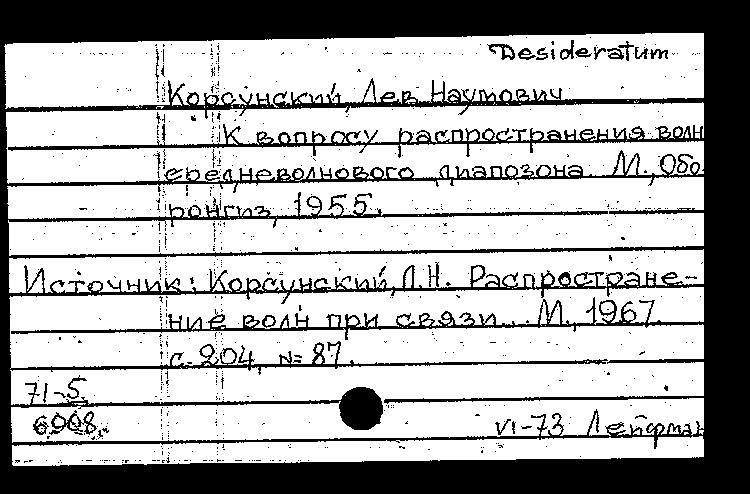 Desideratum
Корсунский, Лев Наумович
К вопросу распространения волн
средневолнового диапозона. М., Обо-
ронгиз, 1955.
Источник: Корсунский, Л.Н. Распростране-
ние волн при связи... М., 1967.
с. 204, № 87.
71-5
6908
VI-73 Лейфман